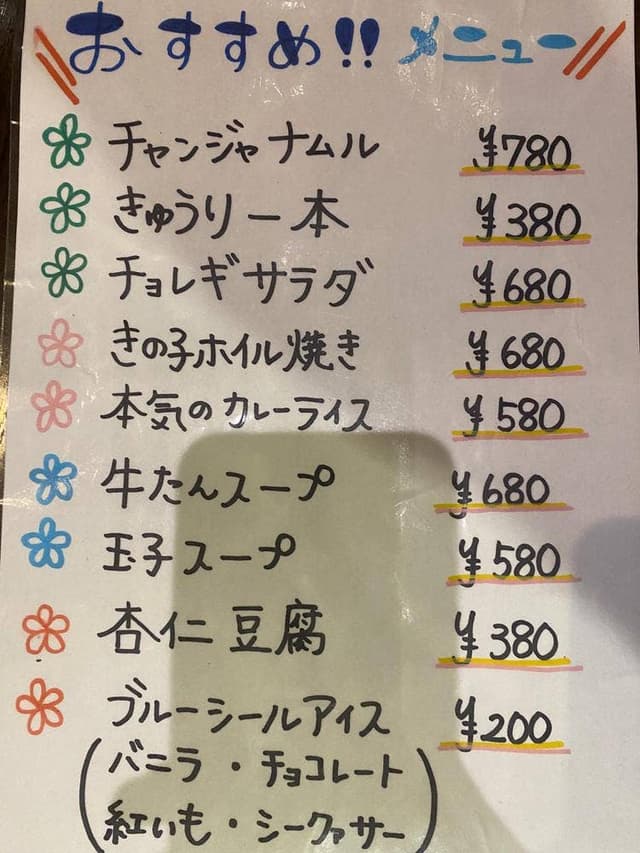 おすすめ!! メニュー
チャンジャナムル ¥780
きゅうり一本 ¥380
チョレギサラダ ¥680
きの子ホイル焼き ¥680
本気のカレーライス ¥580
牛たんスープ ¥680
玉子スープ ¥580
杏仁豆腐 ¥380
ブルーシールアイス ¥200
(バニラ・チョコレート
紅いも・シークァサー)